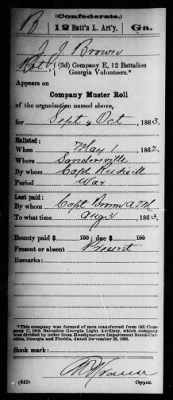 (Confederate.)
B 12 Batt'n L. Art'y. Ga.
J. J. Brown
(3d) Company E, 12 Battalion
Georgia Volunteers.*
Appears on
Company Muster Roll
of the organization named above,
for Sept & Oct, 1863.
Enlisted:
When May 1, 1862.
Where Sandersville
By whom Capt
Period War
Last paid:
By whom Capt
To what time Aug 31, 1863.
Bounty paid $ 100; due $ 100
Present or absent Present
Remarks:
*This company was formed of men transferred from
Georgia Light Artillery, which company was
divided by order from Headquarters Department South Carolina,
Georgia and Florida, dated
Book mark:
(642) Copyist.